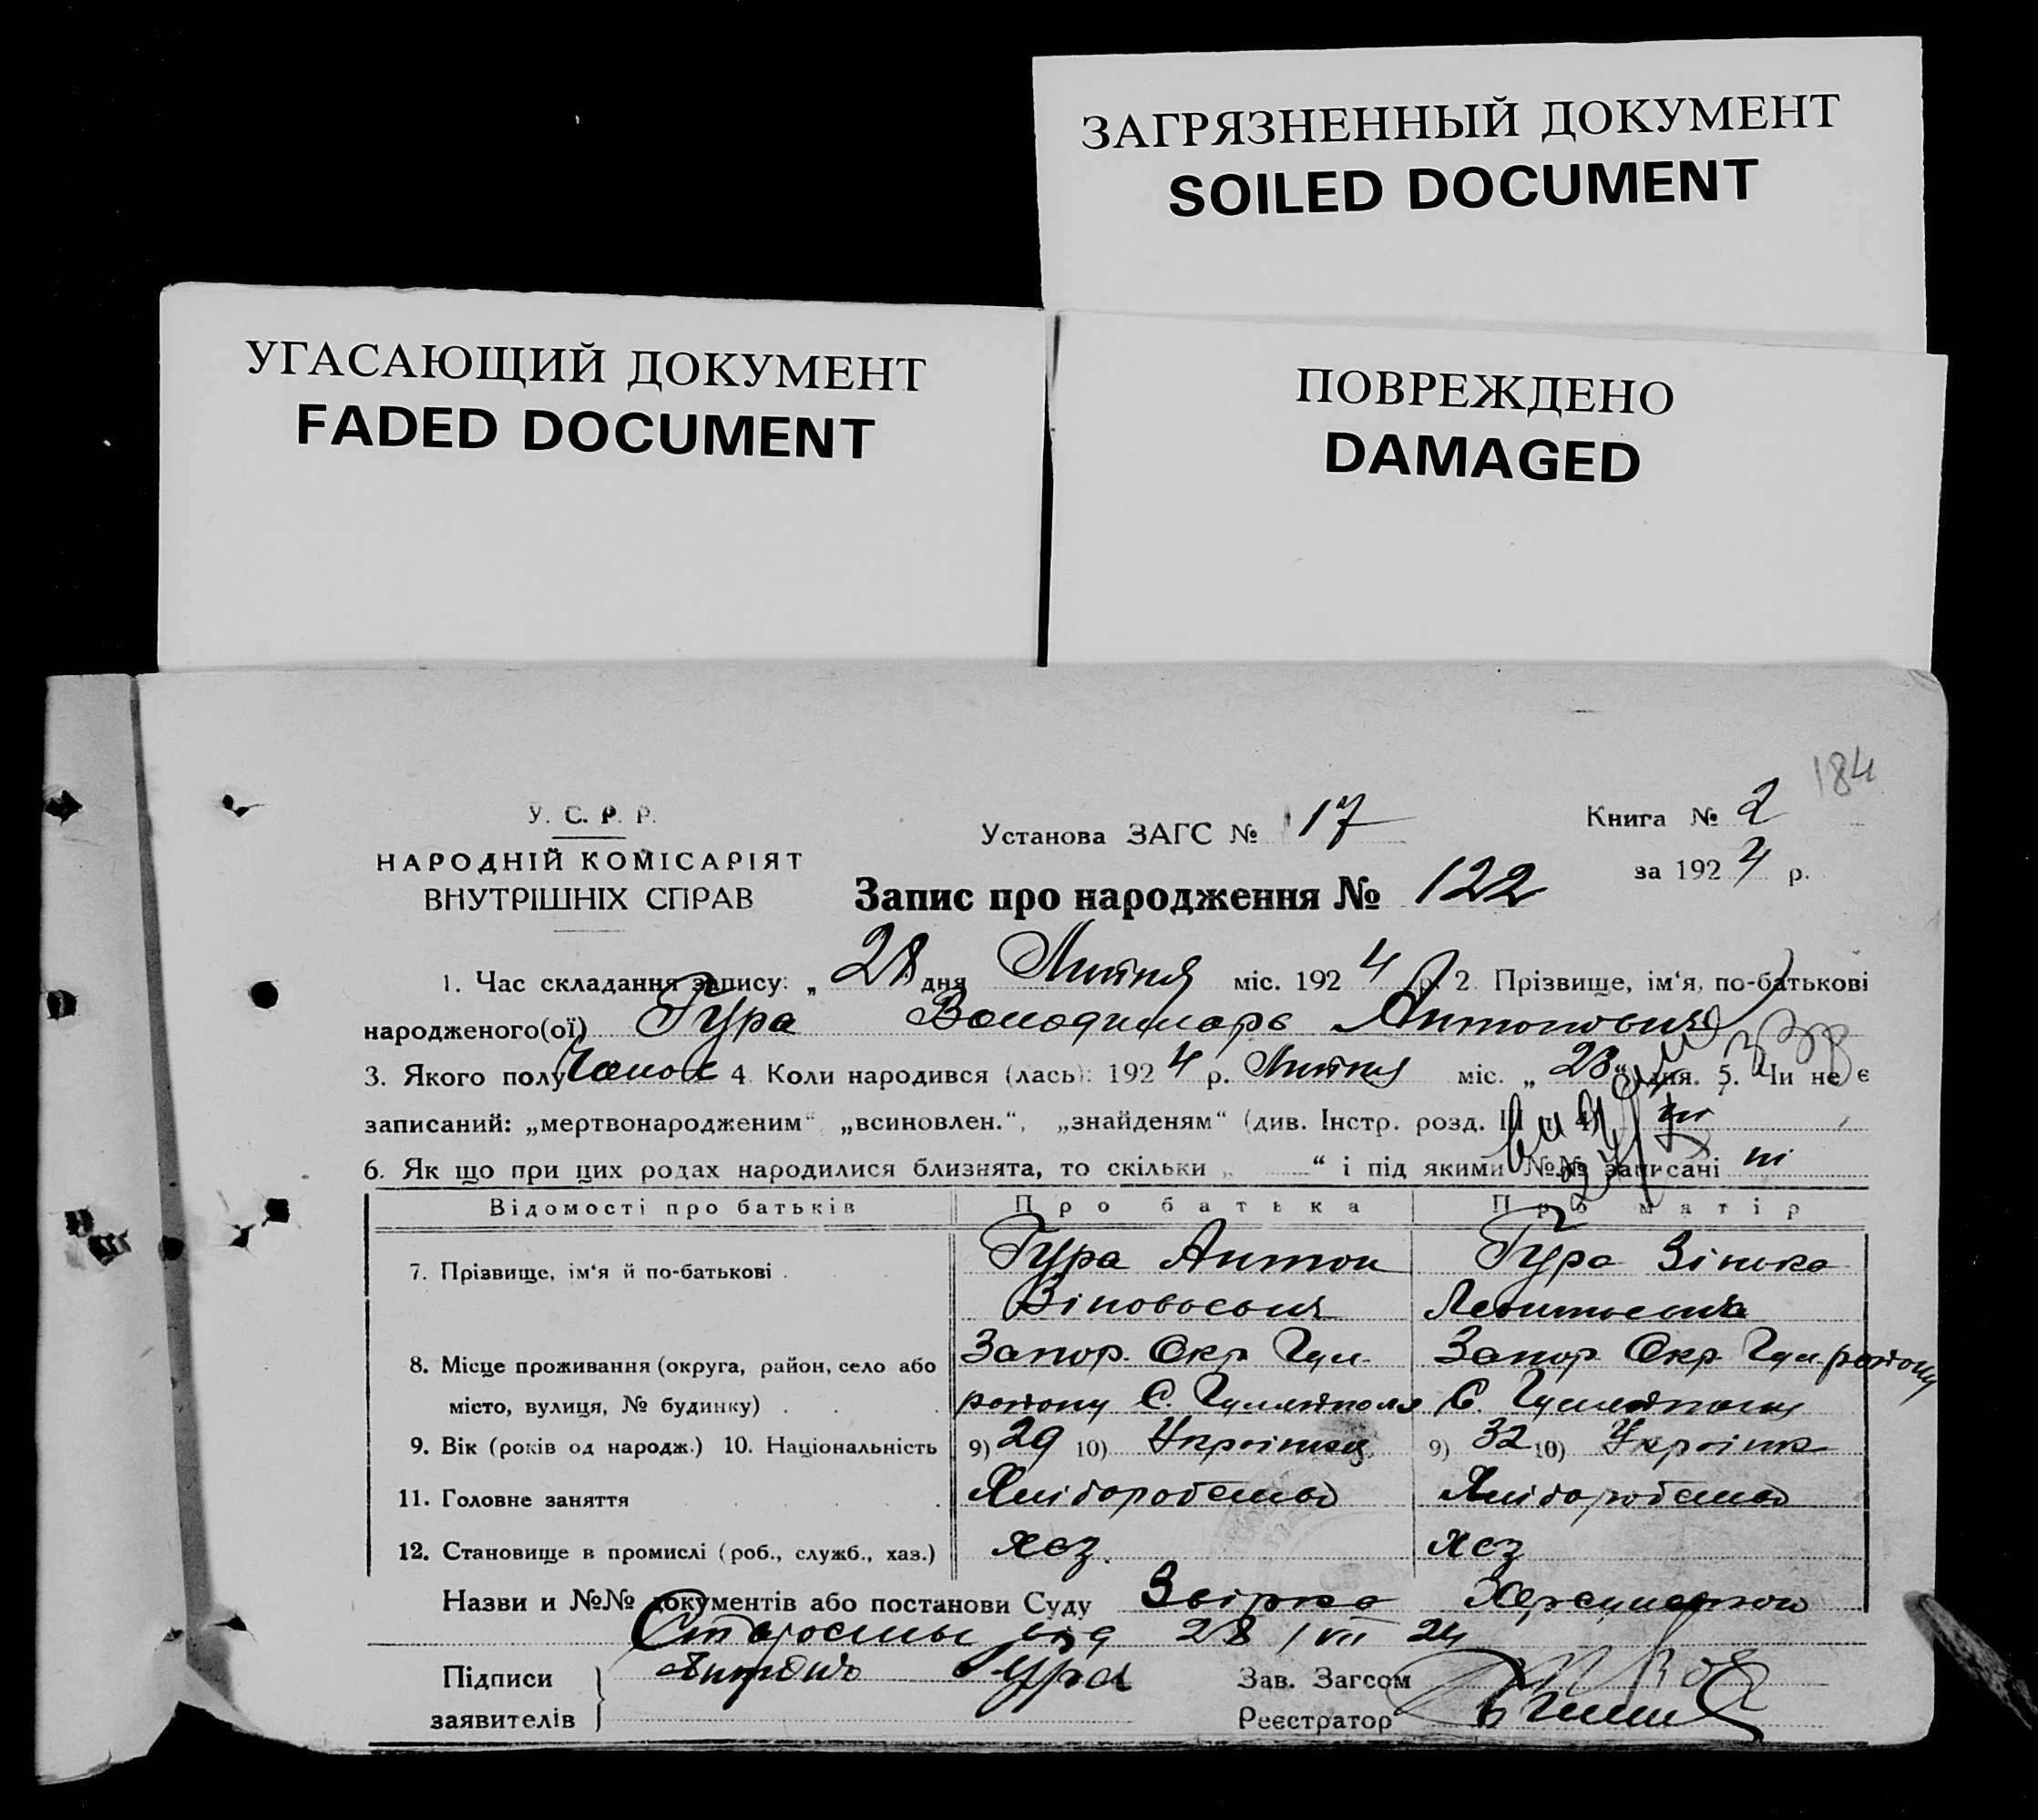 ЗАГРЯЗНЕННЫЙ ДОКУМЕНТ
SOILED DOCUMENT
УГАСАЮЩИЙ ДОКУМЕНТ
FADED DOCUMENT
ПОВРЕЖДЕНО
DAMAGED
184
У. С. Р. Р.
НАРОДНІЙ КОМІСАРІЯТ
ВНУТРІШНІХ СПРАВ
Установа ЗАГС № 17
Книга № 2
за 1924 р.
Запис про народження № 122
1. Час складання запису: „ 28 дня Липня міс. 1924 р. 2. Прізвище, ім‘я, по-батькові
народженого(ої) Гура Володимарь Антонович
3. Якого полу Чолов 4. Коли народився (лась): 1924 р. Липня міс. „ 23 “ дня. 5. Чи не є
записаний: „мертвонародженим“ „всиновлен.“, „знайденям“ (див. Інстр. розд. III п. 4) ні
6. Як що при цих родах народилися близнята, то скільки „ “ і під якими №№ записані ні
Відомості про батьків Про батька Про матір
7. Прізвище, ім‘я й по-батькові . Гура Антон Гура Зінька
Зіновьєвич Леонтьевна
8. Місце проживання (округа, район, село або Запор. Окр Гул. Запор Окр Гул району
місто, вулиця, № будинку) . . . району С. Гуляйполя С. Гуляйполя
9. Вік (років од народж.) 10. Національність 9) 29 10) Українец 9) 32 10) Українка
11. Головне заняття . . . . Хліборобство Хліборобство
12. Становище в промислі (роб., служб., хаз.) хаз. хаз
Назви и №№ документів або постанови Суду
від 28/VII 24
Підписи Антонъ Гура Зав. Загсом
заявителів Реєстратор